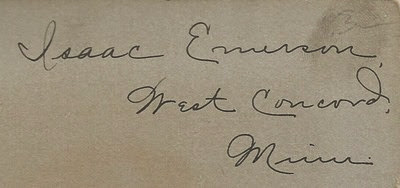 Isaac Emerson,
West Concord,
Minn.